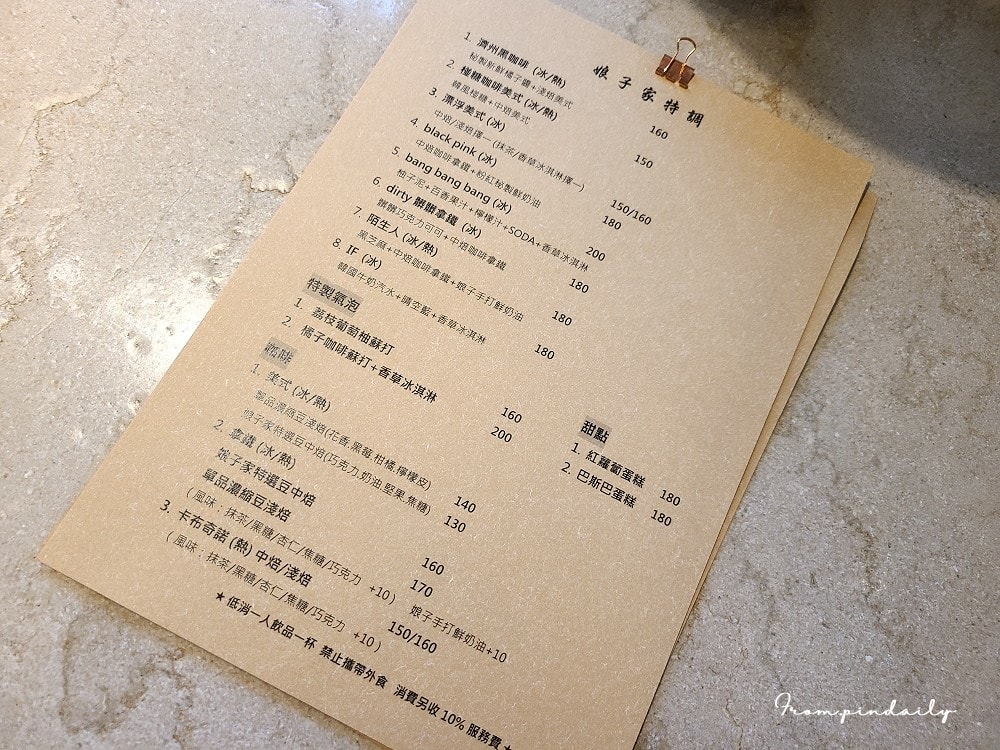 娘子家特調
1. 濟州黑咖啡 (冰/熱) 160
秘製新鮮橘子醬+淺焙美式
2. 椪糖咖啡美式 (冰/熱) 150
韓風椪糖+中焙美式
3. 漂浮美式 (冰) 150/160
中焙/淺焙擇一 (抹茶/香草冰淇淋擇一)
4. black pink (冰) 180
中焙咖啡拿鐵+粉紅秘製鮮奶油
5. bang bang bang (冰) 200
柚子泥+百香果汁+檸檬汁+SODA+香草冰淇淋
6. dirty 髒髒拿鐵 (冰) 180
髒髒巧克力可可+中焙咖啡拿鐵
7. 陌生人 (冰/熱) 180
黑芝麻+中焙咖啡拿鐵+娘子手打鮮奶油
8. IF (冰) 180
韓國牛奶汽水+晴空藍+香草冰淇淋
特製氣泡
1. 荔枝葡萄柚蘇打 160
2. 橘子咖啡蘇打+香草冰淇淋 200
咖啡
1. 美式 (冰/熱)
單品濃縮豆淺焙(花香.黑莓.柑橘.檸檬皮) 140
娘子家特選豆中焙(巧克力.奶油.堅果.焦糖) 130
2. 拿鐵 (冰/熱)
娘子家特選豆中焙 160
單品濃縮豆淺焙 170
(風味：抹茶/黑糖/杏仁/焦糖/巧克力 +10) 娘子手打鮮奶油+10
3. 卡布奇諾 (熱) 中焙/淺焙 150/160
(風味：抹茶/黑糖/杏仁/焦糖/巧克力 +10)
甜點
1. 紅蘿蔔蛋糕 180
2. 巴斯巴蛋糕 180
★ 低消一人飲品一杯 禁止攜帶外食 消費另收 10% 服務費 ★
From.pindaily